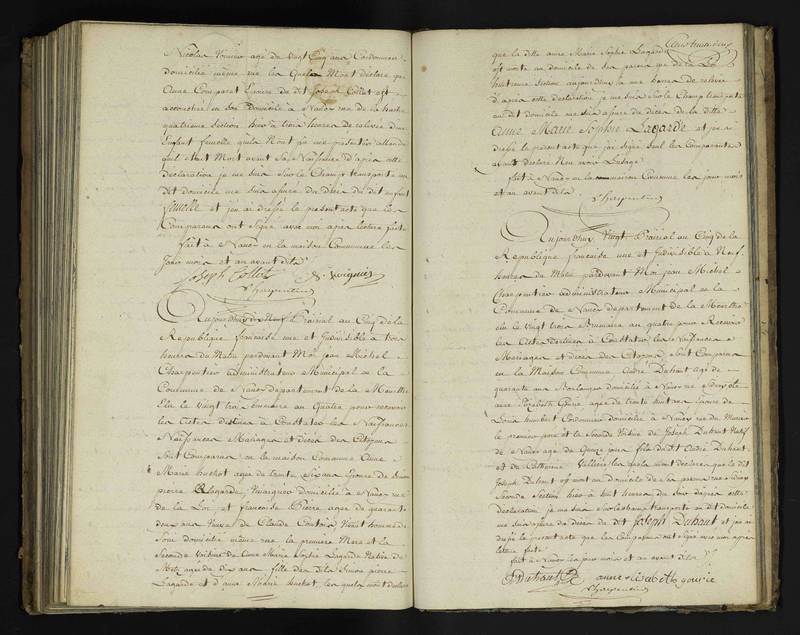 Nicolas Voinier agé de vingt Cinq ans Cordonnier
domicilié même rue les Quels M'ont déclaré que
Anne Comparet Epouse du dit Joseph Collet est
accouchée en son domicile à Nancy rue de la hache
quatrieme Section hier à trois heures de relevée d'un
Enfant femelle qu'ils n'ont pu me presenter attendu
qu'il était Mort avant Sa Naissance d'après cette
déclaration je me suis Sur le Champ transporté au
dit domicile me suis assuré du décès du dit enfant
femelle et j'en ai dressé le present acte que les
Comparans ont Signé avec moi après lecture faite
fait à Nancy en la maison Commune les
jour mois et an avant dits
Joseph Collet N. Voignier
Charpentier
Aujourdhuy dix Neuf Prairial au Cinq de la
Republique française une et Indivisible à trois
heures du Matin pardevant Moi jean Michel
Charpentier administrateur Municipal de la
Commune de Nancy departement de la Meurthe
Elu le Vingt trois brumaire an Quatre pour recevoir
les Actes destinés à Constater les Naissances
Naissances Mariages et décès des Citoyens
Sont Comparus en la maison Commune Anne
Marie huchet agée de trente Six ans Epouse de Simon
pierre Lagarde Vinaigrier domicilié à Nancy rue
de la Loi et françoise Pierre agée de quarante
deux ans Veuve de Claude Vivant homme de
Loi domicilié même rue la premiere Mere et la
Seconde Voisine de Anne Marie Sophie Lagarde Native de
Metz agée de dix ans fille des dits Simon pierre
Lagarde et d'anne Marie huchet, les quels m'ont declaré
que la ditte anne Marie Sophie Lagarde
est morte au domicile de Ses pere et mere rue de la Loi
huitieme Section aujourdhuy à une heure de relevée
d'après cette declaration je me suis Sur le Champ transporté
au dit domicile me suis assuré du décès de la ditte
Anne Marie Sophie Lagarde et j'en ai
dressé le present acte que j'ai Signé Seul les Comparantes
ayant declaré n'en avoir l'usage
fait à Nancy en la maison Commune les jour mois
et an avant dits
Charpentier
Aujourdhuy Vingt Prairial au Cinq de la
Republique française une et Indivisible à Neuf
heures du Matin pardevant Moi jean Michel
Charpentier administrateur Municipal de la
Commune de Nancy département de la Meurthe
elu le vingt trois Brumaire an quatre pour Recevoir
les Actes destinés à Constater les Naissances
Mariages et décès des Citoyens, Sont Comparus
en la Maison Commune André Duhaut agé de
quarante ans Boulanger domicilié à Nancy rue
anne Elizabeth Gourié agée de trente huit ans Epouse de
Louis humbert Cordonnier domicilié à Nancy rue du
le premier pere et la Seconde Voisine de Joseph Duhaut Natif
de Nancy agé de Quinze jours fils du dit André Duhaut
et de Catherine les quels mont declaré que le dit
Joseph Duhaut est mort au domicile de Ses pere et mere
Seconde Section hier à huit heures du Soir dapres cette
declaration je me suis Sur le champ transporté au dit domicile
me suis assuré du décès du dit Joseph Duhaut et j'en ai
dressé le present acte que les Comparans ont Signé avec moi apres
lecture faite
fait à Nancy les jour mois et an avant dits
A Duhaut anne elisabeth gourié
Charpentier